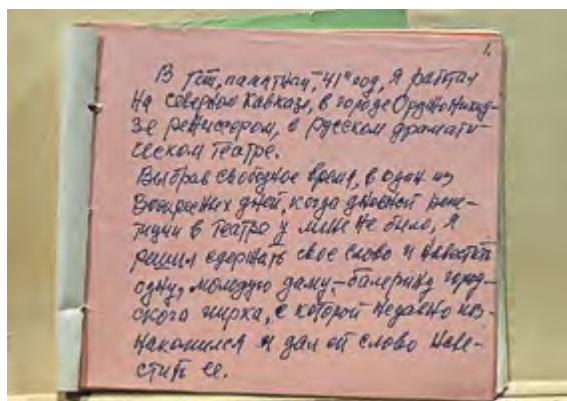 1.
В тот, памятный, 41й год, я работал
на северном Кавказе, в городе Орджоникид-
зе режиссером, в русском драмати-
ческом театре.
Выбрав свободное время, в один из
воскресных дней, когда дневной репе-
тиции в театре у меня не было, я
решил сдержать свое слово и навестить
одну, молодую даму-балерину город-
ского цирка, с которой недавно поз-
накомился и дал ей слово наве-
стить ее.